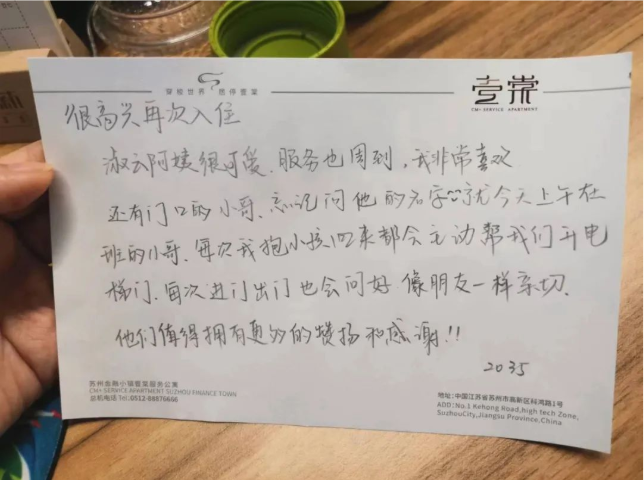 穿梭世界 旅得壹棠
壹棠
CM+ SERVICE APARTMENT
很高兴再次入住
淑云阿姨很可爱、服务也周到,我非常喜欢
还有门口的小哥、忘记问他的名字~就今天上午在
班的小哥、每次我抱小孩回来都会主动帮我们开电
梯门、每次进门出门也会问好 像朋友一样亲切、
他们值得拥有更多的赞扬和感谢!!
2035
苏州金融小镇壹棠服务公寓
CM+ SERVICE APARTMENT SUZHOU FINANCE TOWN
总机电话 Tel:0512-68876666
地址:中国江苏省苏州市高新区科鸿路1号
ADD:No.1 Kehong Road,high tech Zone,
SuzhouCity,Jiangsu Province,China